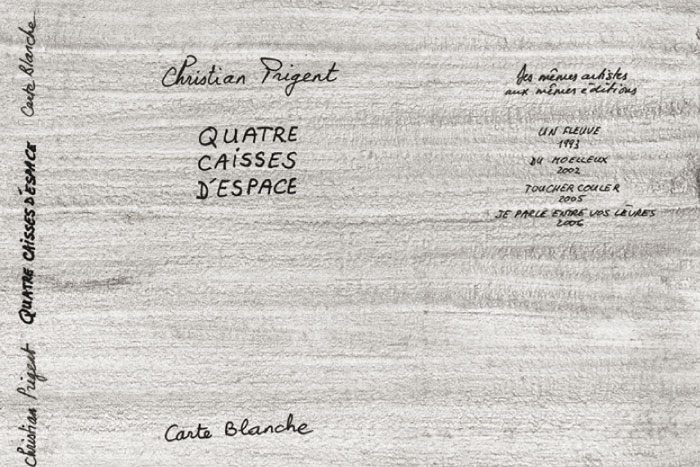 Christian Prigent
QUATRE CAISSES D'ESPACE
Carte Blanche
Christian Prigent
QUATRE
CAISSES
D'ESPACE
Carte Blanche
des mêmes artistes
aux mêmes éditions
UN FLEUVE
1993
DU MOELLEUX
2002
TOUCHER COULER
2005
JE PARLE ENTRE VOS LÈVRES
2006